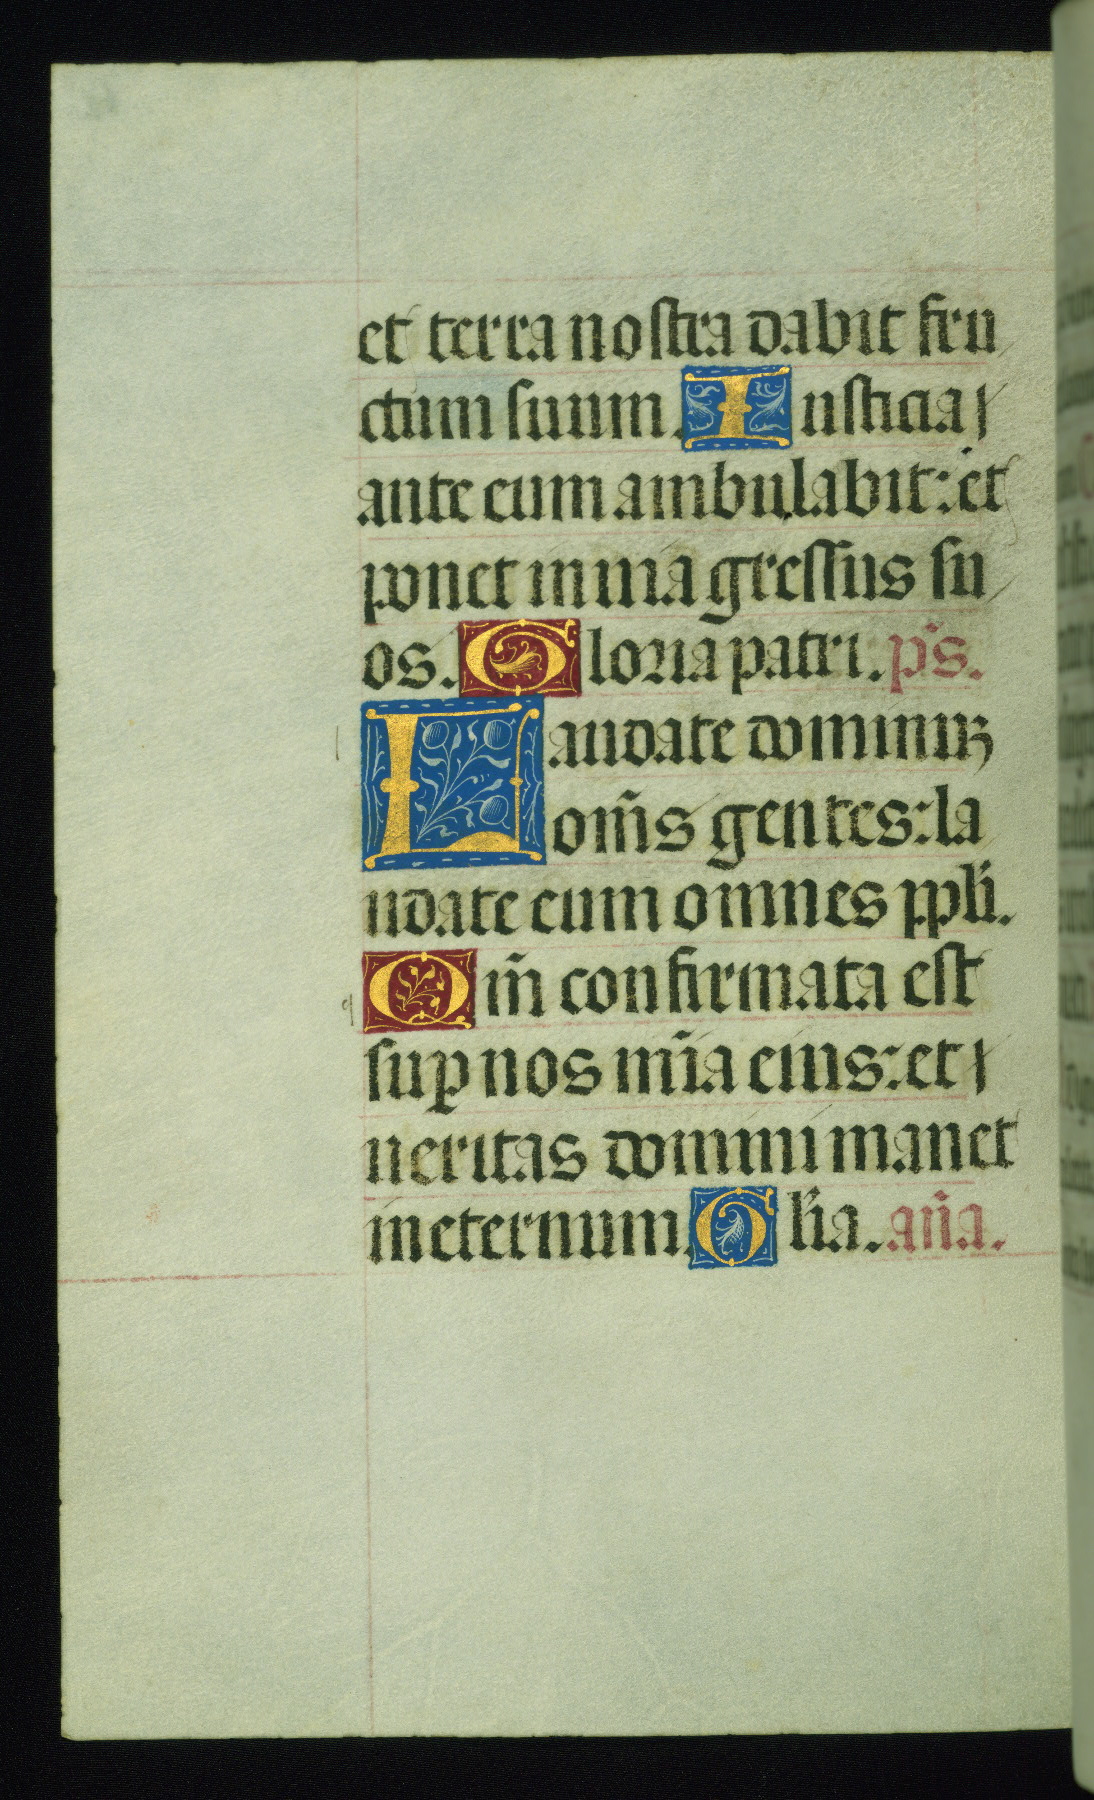 et terra nostra dabit fru
ctum suum. Iusticia
ante eum ambulabit: et
ponet in uia gressus su
os. Gloria patri. ps̄.
Laudate dominuꝫ
om̄s gentes: la
udate eum omnes ppl̄i.
Qm̄ confirmata est
suꝑ nos mīa eius: et
ueritas domini manet
in eternum. Gl̄ia. an̄a.